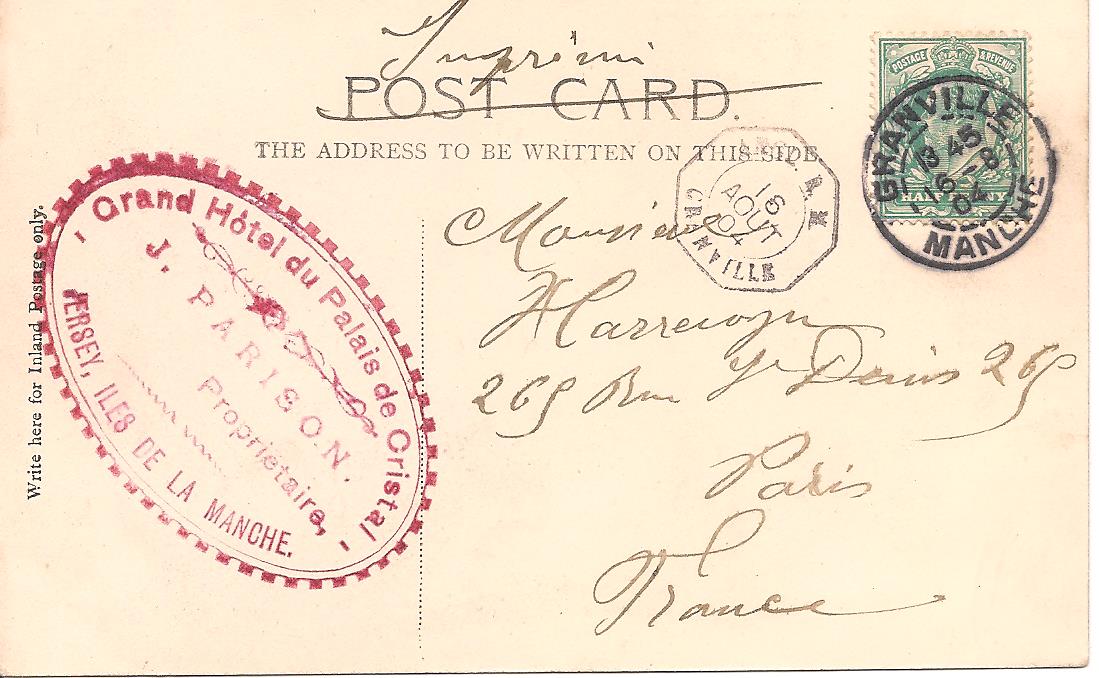 Imprimé
POST CARD.
THE ADDRESS TO BE WRITTEN ON THIS SIDE
POSTAGE & REVENUE
GRANVILLE
13 45
16 - 8
04
MANCHE
16
AOUT
04
GRANVILLE
Write here for Inland Postage only.
Grand Hôtel du Palais de Cristal
J. PARISON.
Propriétaire,
JERSEY, ILES DE LA MANCHE.
Monsieur
269 Rue St Denis 269
Paris
France